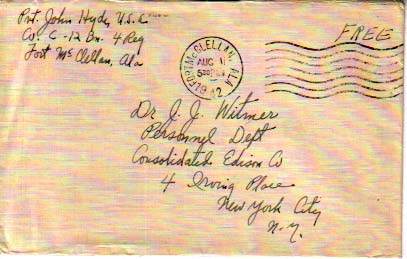 Pvt. John Hyde, U.S.
Co. C-12 Bn. 4 Reg
Fort McClellan, Ala
FREE
FORT MCCLELLAN, ALA.
AUG 11
5 PM
1942
Dr. J. J. Witmer
Personnel Dept
Consolidated Edison Co
4 Irving Place
New York City
N.Y.